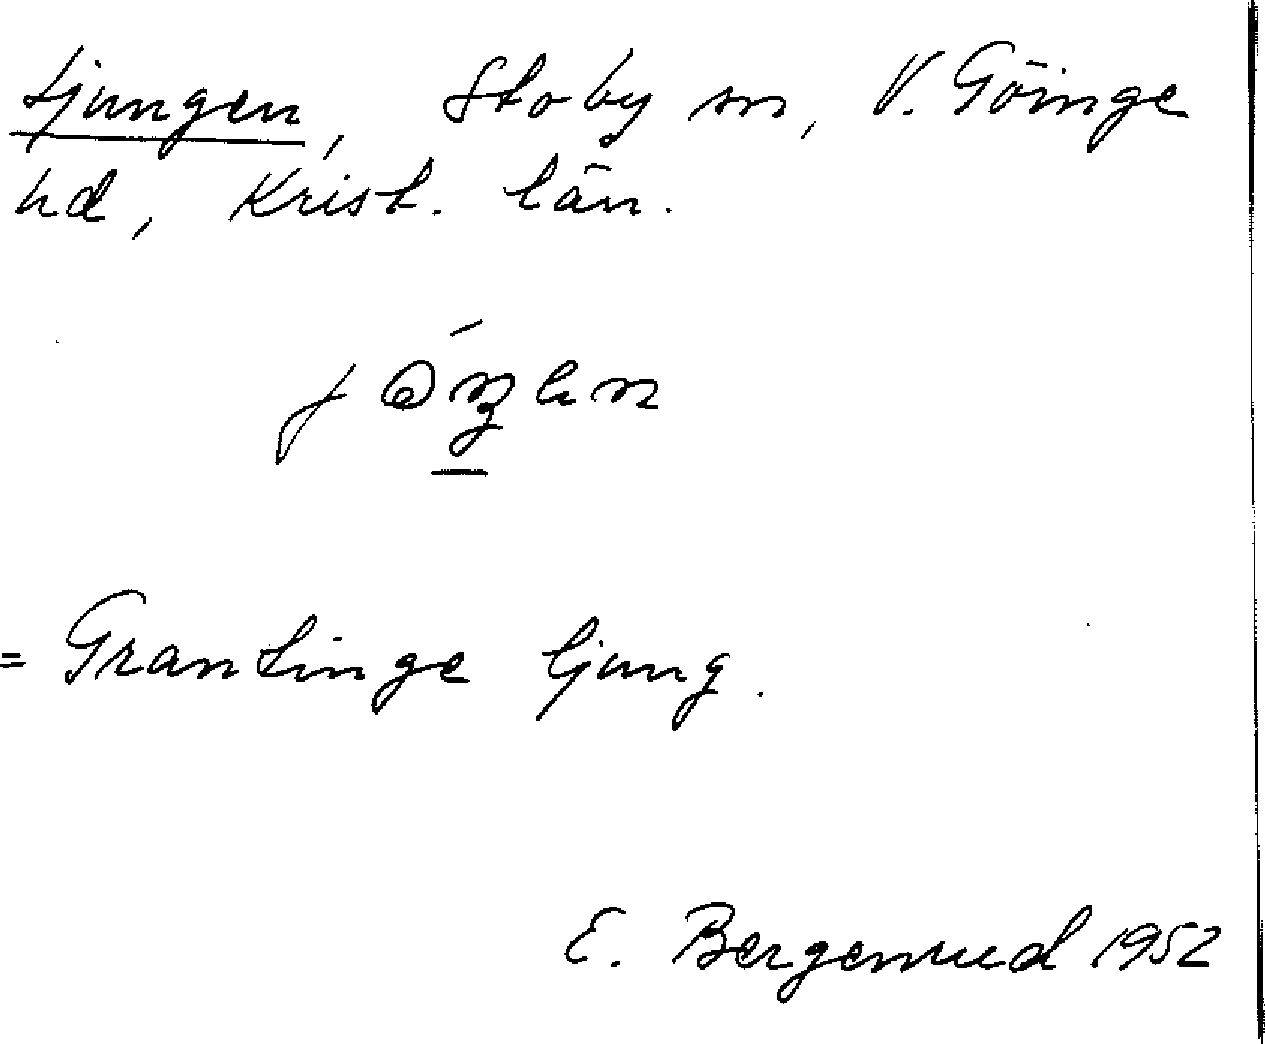 Ljungen, Stoby sn, V. Göinge
hd, Krist. län.
= Grantinge ljung.
E. Bergenrud 1952